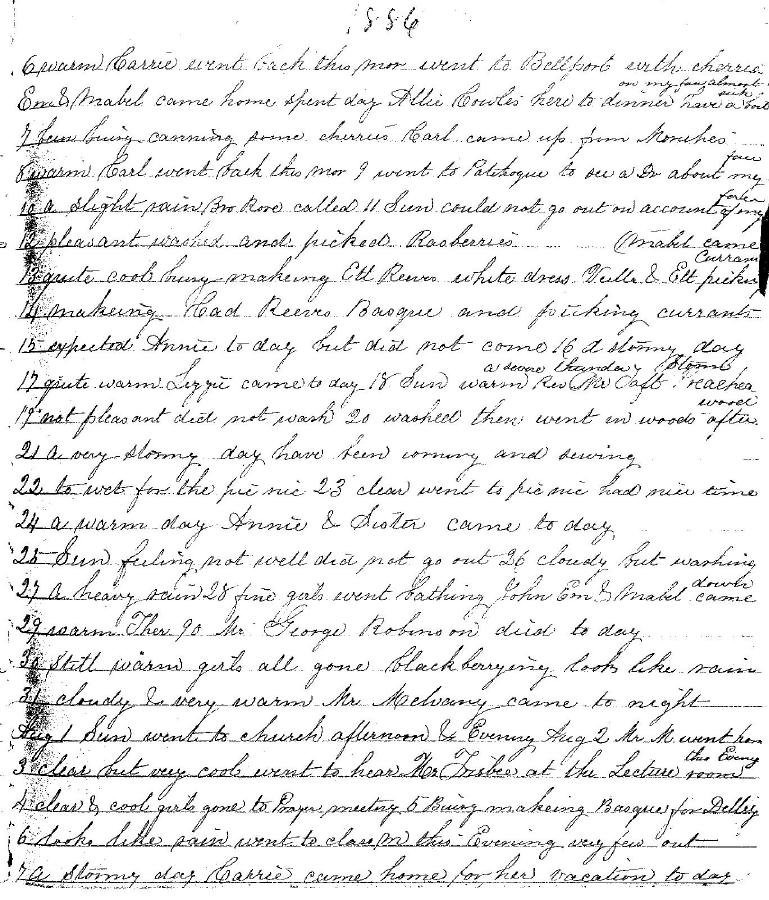 1886
6 warm Carrie went back this mor went to Bellport with cherries
on my face almost sick
Em & Mabel came home spent day Allie Cowles here to dinner have a
7 been busy canning some cherries Carl came up from Moriches
8 warm Carl went back this mor 9 went to Patchogue to see a Dr about my face
10 a slight rain Bro Rore called 11 Sun could not go out on account of my
12 pleasant washed and picked Rasberries (Mabel came
13 quite cool busy makeing Ett Reeves white dress & Ett picking Currants
14 makeing Had Reeves Basque and picking currants
15 expected Annie to day but did not come 16 a stormy day
a severe thunder storm
17 quite warm Lizzie came to day 18 Sun warm Rev Mr Taft
19 not pleasant did not wash 20 washed then went in woods after wood
21 a very stormy day have been ironing and sewing
22 to wet for the pic nic 23 clear went to pic nic had nice time
24 a warm day Annie & Sister came to day
25 Sun feeling not well did not go out 26 cloudy but washing
27 a heavy rain 28 fine girls went bathing John Em & Mabel came down
29 warm Ther 90 Mr George Robinson died to day
30 still warm girls all gone blackberrying looks like rain
31 cloudy & very warm Mr Melvany came to night
Aug 1 Sun went to church afternoon & Evening Aug 2 Mr M went home
this Eveng
3 clear but very cool went to hear Mr Frisbee at the Lecture room
4 clear & cool girls gone to Prayer meeting 5 Busy makeing Basque for
6 looks like rain went to class m this Evening very few out
7 a stormy day Carrie came home for her vacation to day